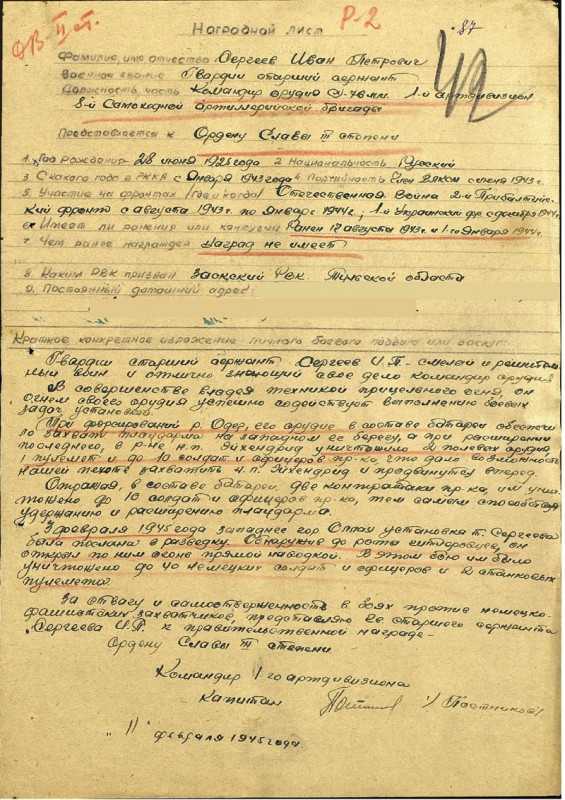 ОВ II ст.
Р-2
87
42
Наградной лист
Фамилия, имя отчество Сергеев Иван Петрович
Военное звание Гвардии старший сержант
Должность, часть Командир орудия СУ-76 мм. 1-й артдивизион
8-й Самоходной артиллерийской бригады
Представляется к Ордену Славы III степени
1. Год рождения 28 июня 1925 года 2. Национальность Русский
3. С какого года в РККА с Января 1943 года 4. Партийность Член ВЛКСМ с июня 1943 г.
5. Участие на фронтах (где и когда) Отечественная война 2-й Прибалтийс-
кий фронт с августа 1943 г. по Январь 1944 г., 1-й Украинский фр. с декабря 1944 г.
6. Имеет ли ранения или контузии Ранен 17 августа 1943 г. и 1-го Января 1944 г.
7. Чем ранее награжден Наград не имеет
8. Каким РВК призван Заокский РВК. Тульской области
9. Постоянный домашний адрес:
Краткое конкретное изложение личного боевого подвига или заслуг:
Гвардии старший сержант Сергеев И.П. – смелый и решитель-
ный воин и отлично знающий свое дело командир орудия
В совершенстве владея техникой прицельного огня, он
огнем своего орудия успешно содействует выполнению боевых
задач установкой.
При форсировании р. Одер, его орудие в составе батареи обеспечи-
ло захват плацдарма на западном ее берегу, а при расширении
последнего, в р-не н.п. Эйхендрид уничтожило 2 полевых орудия,
1 пулемет и до 10 солдат и офицеров пр-ка, что дало возможность
нашей пехоте захватить н.п. Эйхендрид и продвинуться вперед.
Отражая, в составе батареи, две контратаки пр-ка, им унич-
тожено до 10 солдат и офицеров пр-ка, тем самым способствуя
удержанию и расширению плацдарма.
3 февраля 1945 года западнее гор. установка т. Сергеева
была послана в разведку. Обнаружив до роты гитлеровцев, он
открыл по ним огонь прямой наводкой. В этом бою им было
уничтожено до 40 немецких солдат и офицеров и 2 станковых
пулемета.
За отвагу и самоотверженность в боях против немецко-
фашистских захватчиков, представляю гв. старшего сержанта
Сергеева И.П. к правительственной награде –
Ордену Славы III степени
Командир 1-го артдивизиона
Капитан /Постников/
"11" февраля 1945 года.